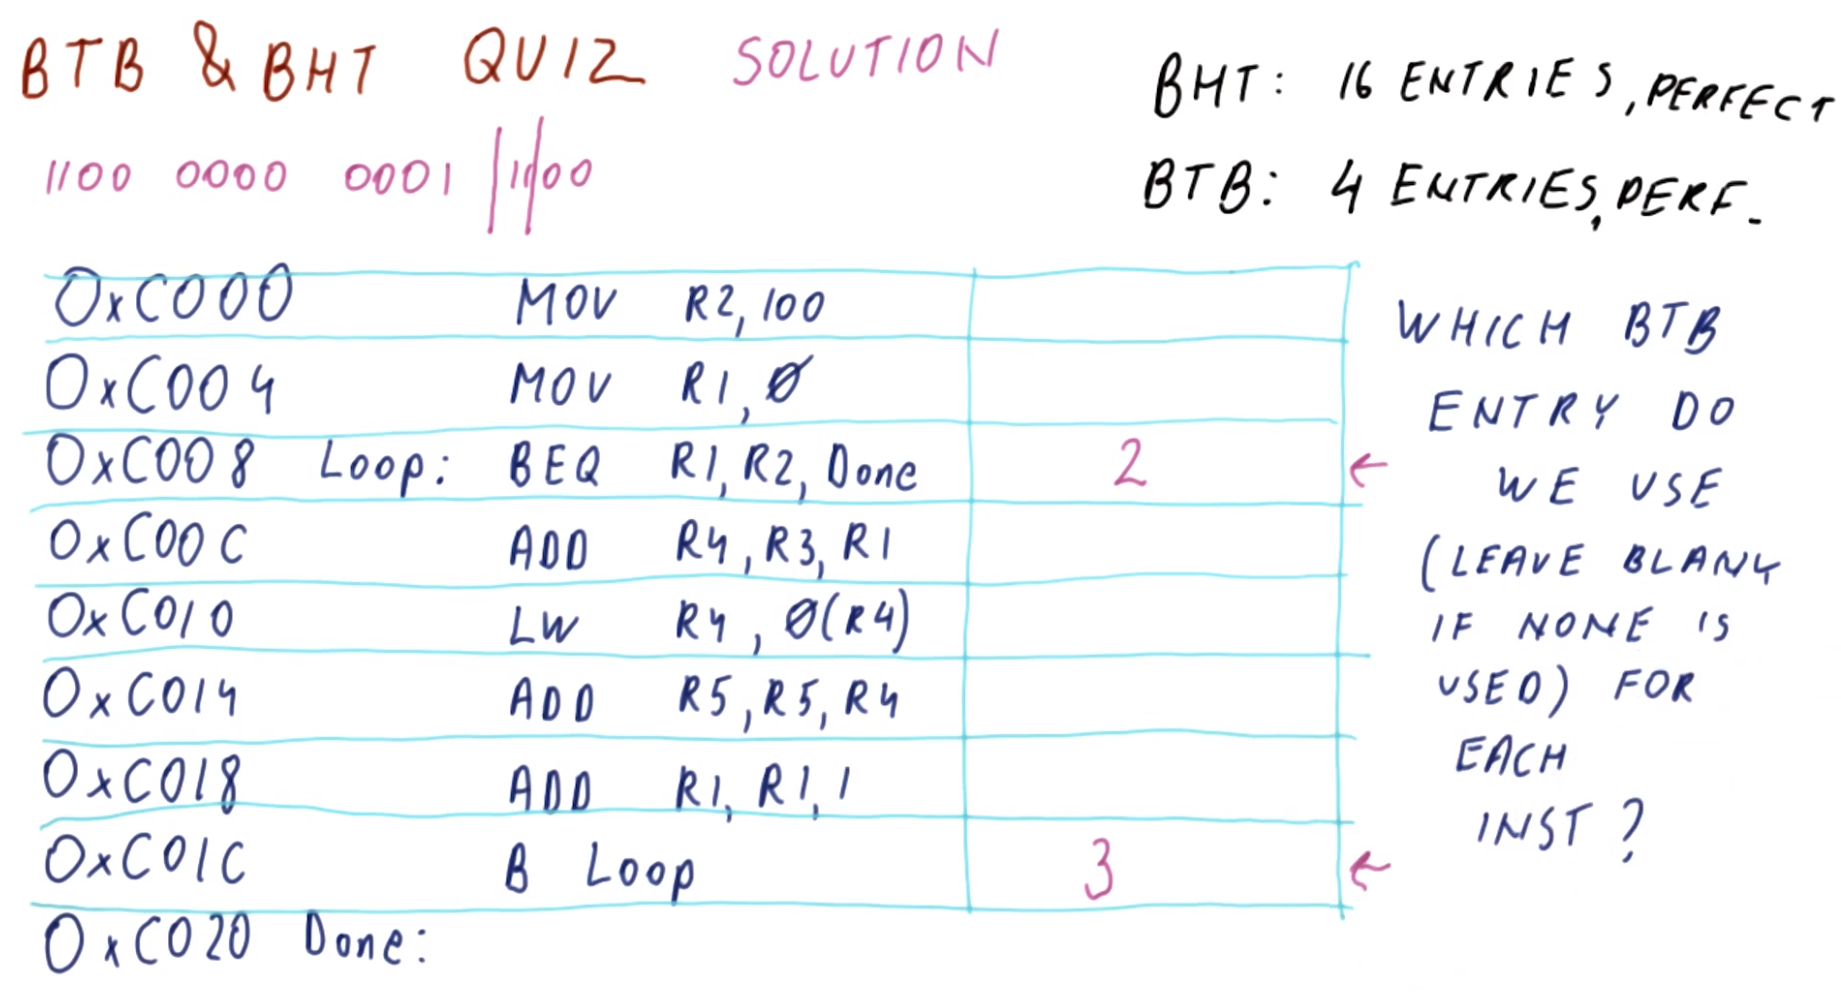 BTB & BHT QUIZ SOLUTION
BHT: 16 ENTRIES, PERFECT
1100 0000 0001 1100
BTB: 4 ENTRIES, PERF.
0xC000 MOV R2, 100
0xC004 MOV R1, Ø
0xC008 Loop: BEQ R1, R2, Done 2 ←
0xC00C ADD R4, R3, R1
0xC010 LW R4, Ø(R4)
0xC014 ADD R5, R5, R4
0xC018 ADD R1, R1, 1
0xC01C B Loop 3 ←
0xC020 Done:
WHICH BTB
ENTRY DO
WE USE
(LEAVE BLANK
IF NONE IS
USED) FOR
EACH
INST?